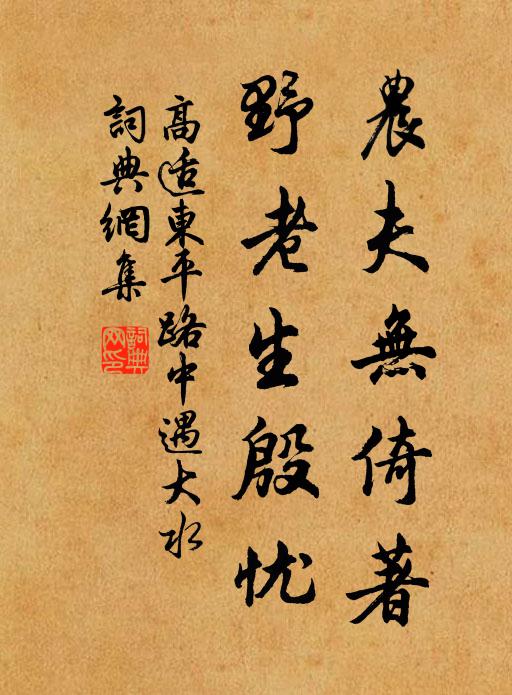 農夫無倚著
野老生殷忧
高适東平路中遇大水
詞典網集
詞典網印